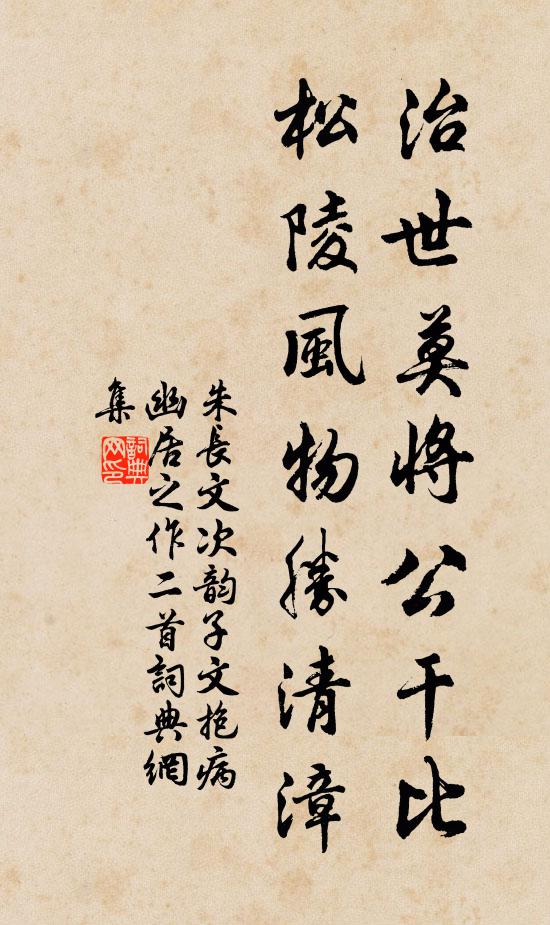 治世莫將公干比
松陵風物勝清漳
朱長文次韵子文抱病
幽居之作二首詞典網
集
詞典
网印